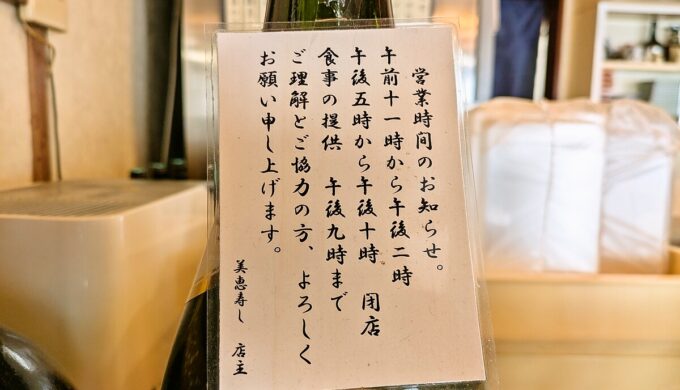 営業時間のお知らせ。
午前十一時から午後二時
午後五時から午後十時　閉店
食事の提供　午後九時まで
ご理解とご協力の方、よろしく
お願い申し上げます。
美恵寿し　店主